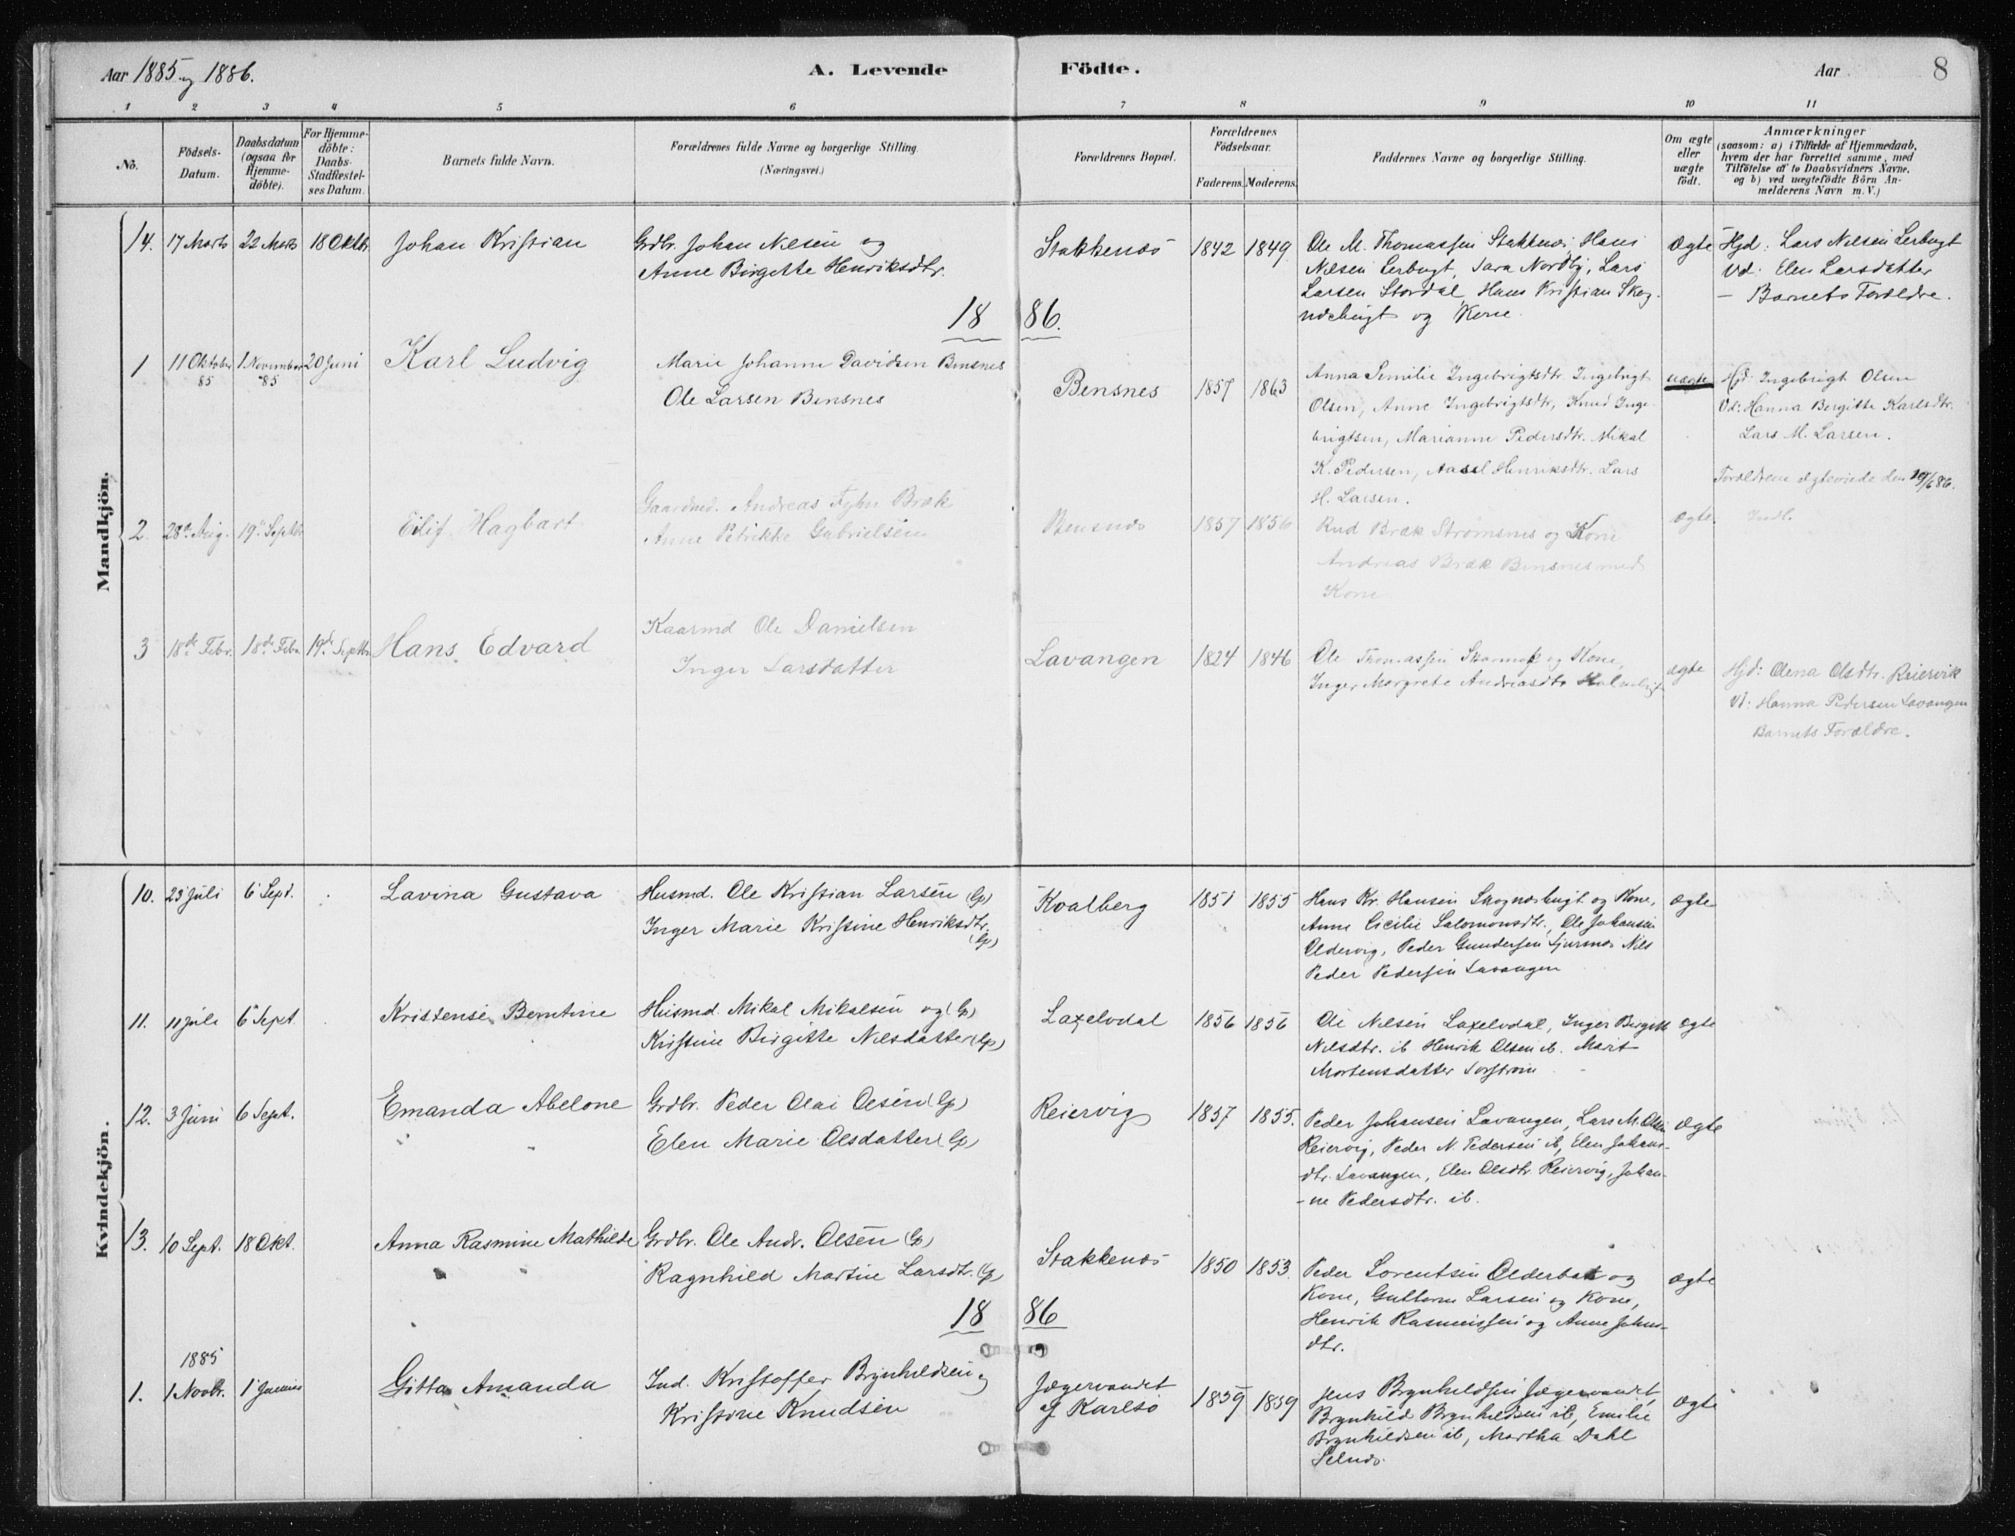 Aar 1885 og 1886.
A. Levende Födte.
Aar
8
1 2 3 4 5 6 7 8 9 10 11
No.
Födsels-Datum.
Daabsdatum (ogsaa for Hjemme-döbte).
For Hjemme-döbte: Daabs-Stadfæstel-ses Datum.
Barnets fulde Navn.
Forældrenes fulde Navne og borgerlige Stilling.
(Næringsvei.)
Forældrenes Bopæl.
Forældrenes Födselsaar.
Faderens. Moderens.
Faddernes Navne og borgerlige Stilling.
Om ægte eller uægte födt.
Anmærkninger
(saasom: a) i Tilfælde af Hjemmedaab,
hvem der har forrettet samme, med
Tilföielse af to Daabsvidners Navne,
og b) ved uægtefödte Börn An-
melderens Navn m. V.)
Mandkjön.
14. 17 Marts 22 Marts 18 Oktbr Johan Kristian Grdbr. Johan Nilsen og Stakkenæs 1842 1849 Ole M. Thomassen Stakkenæs Hans ægte Hjd: Lars Nilsen Lerbugt
Anne Birgitte Henriksdtr. Nilsen Lerbugt, Sara Nordby, Lars Vd: Elen Larsdatter
Larsen Stordal, Hans Kristian Skog- — Barnets Forældre.
næsbugt og Kone.
18 86.
1 11 Oktober 85 1 November 85 20 Juni Karl Ludvig Marie Johanne Davidsen Bensnes Bensnes 1857 1863 Anna Emilie Ingebrigtsdtr. Ingebrigt uægte Hjd: Ingebrigt Olsen
Ole Larsen Bensnes Olsen, Anne Ingebrigtsdtr, Knud Inge- Vd: Hanna Bergitte Karlsdtr.
brigtsen, Marianne Pedersdtr. Mikal Lars M. Larsen.
K. Pedersen, Aasel Henriksdtr. Lars Forældrene ægteviede den 19/6 86.
H. Larsen.
2 28de Aug. 19de Septbr. Eilif Hagbart Gaardmd. Andreas Fyhn Bræk Bensnæs 1857 1856 Rud Bræk Strømsnes og Kone ægte. Indl.
Anne Petrikke Gabrielsen Andreas Bræk Bensnes med
Kone
3 18de Febr. 18de Febr. 19de Septbr. Hans Edvard Kaarmd Ole Danielsen Lavangen 1824 1846 Ole Thomassen Skarmo og Kone, ægte Hjd: Olena Olsdtr. Reiervik
Inger Larsdatter Inger Margrete Andreasdtr Vd: Hanna Pedersen Lavangen
Barnets Forældre.
Kvindekjön.
10. 23 Juli 6 Sept. Lavina Gustava Husmd. Ole Kristian Larsen (Gp) Kvalberg 1851 1855 Hans Kr. Hansen Skognæsbugt og Kone, ægte
Inger Marie Kristine Henriksdtr. (Gp) Anne Cicilie Salomonsdtr., Ole Johansen
Oldervig, Peder Gundersen Sjursnæs Nils
Peder Pedersen Lavangen
11. 11 Juli 6 Sept. Kristense Berntine Husmd. Mikal Mikalsen og (Gp) Laxelvdal 1856 1856 Ole Nilsen Laxelvdal, Inger Birgitte ægte
Kristine Birgitte Nilsdatter (Gp) Nilsdtr. ib. Henrik Olsen ib. Marit
Mortensdatter
12. 3 Juni 6 Sept. Emanda Abelone Grdbr. Peder Olai Olsen (Gp) Reiervig 1857 1855. Peder Johansen Lavangen, Lars M. Olsen ægte
Elen Marie Olsdatter (Gp) Reiervig, Peder N. Pedersen ib, Elen Johans-
dtr. Lavangen, Elen Olsdtr. Reiervig, Johan-
-ne Pedersdtr. ib.
13. 10 Sept. 18 Okt. Anna Rasmine Mathilde Grdbr. Ole Andr. Olsen (Gp) Stakkenæs 1850 1853. Peder Lorentsen Olderbak og ægte
Ragnhild Martine Larsdtr. (Gp Kone, Guttorm Larsen og Kone,
Henrik Rasmussen og Anne Johns-
dtr.
18 86
1. 1885 1 Novbr. 1 Januar Gitta Amanda Ind. Kristoffer Brynhildsen og Jægervandet 1859 1859 Jens Brynhildsen Jægervandet, ægte
Kristine Knudsen af Karlsø Brynhild Brynhildsen ib, Emilie
Brynhildsen ib, Martha Dahl
Selnæs.